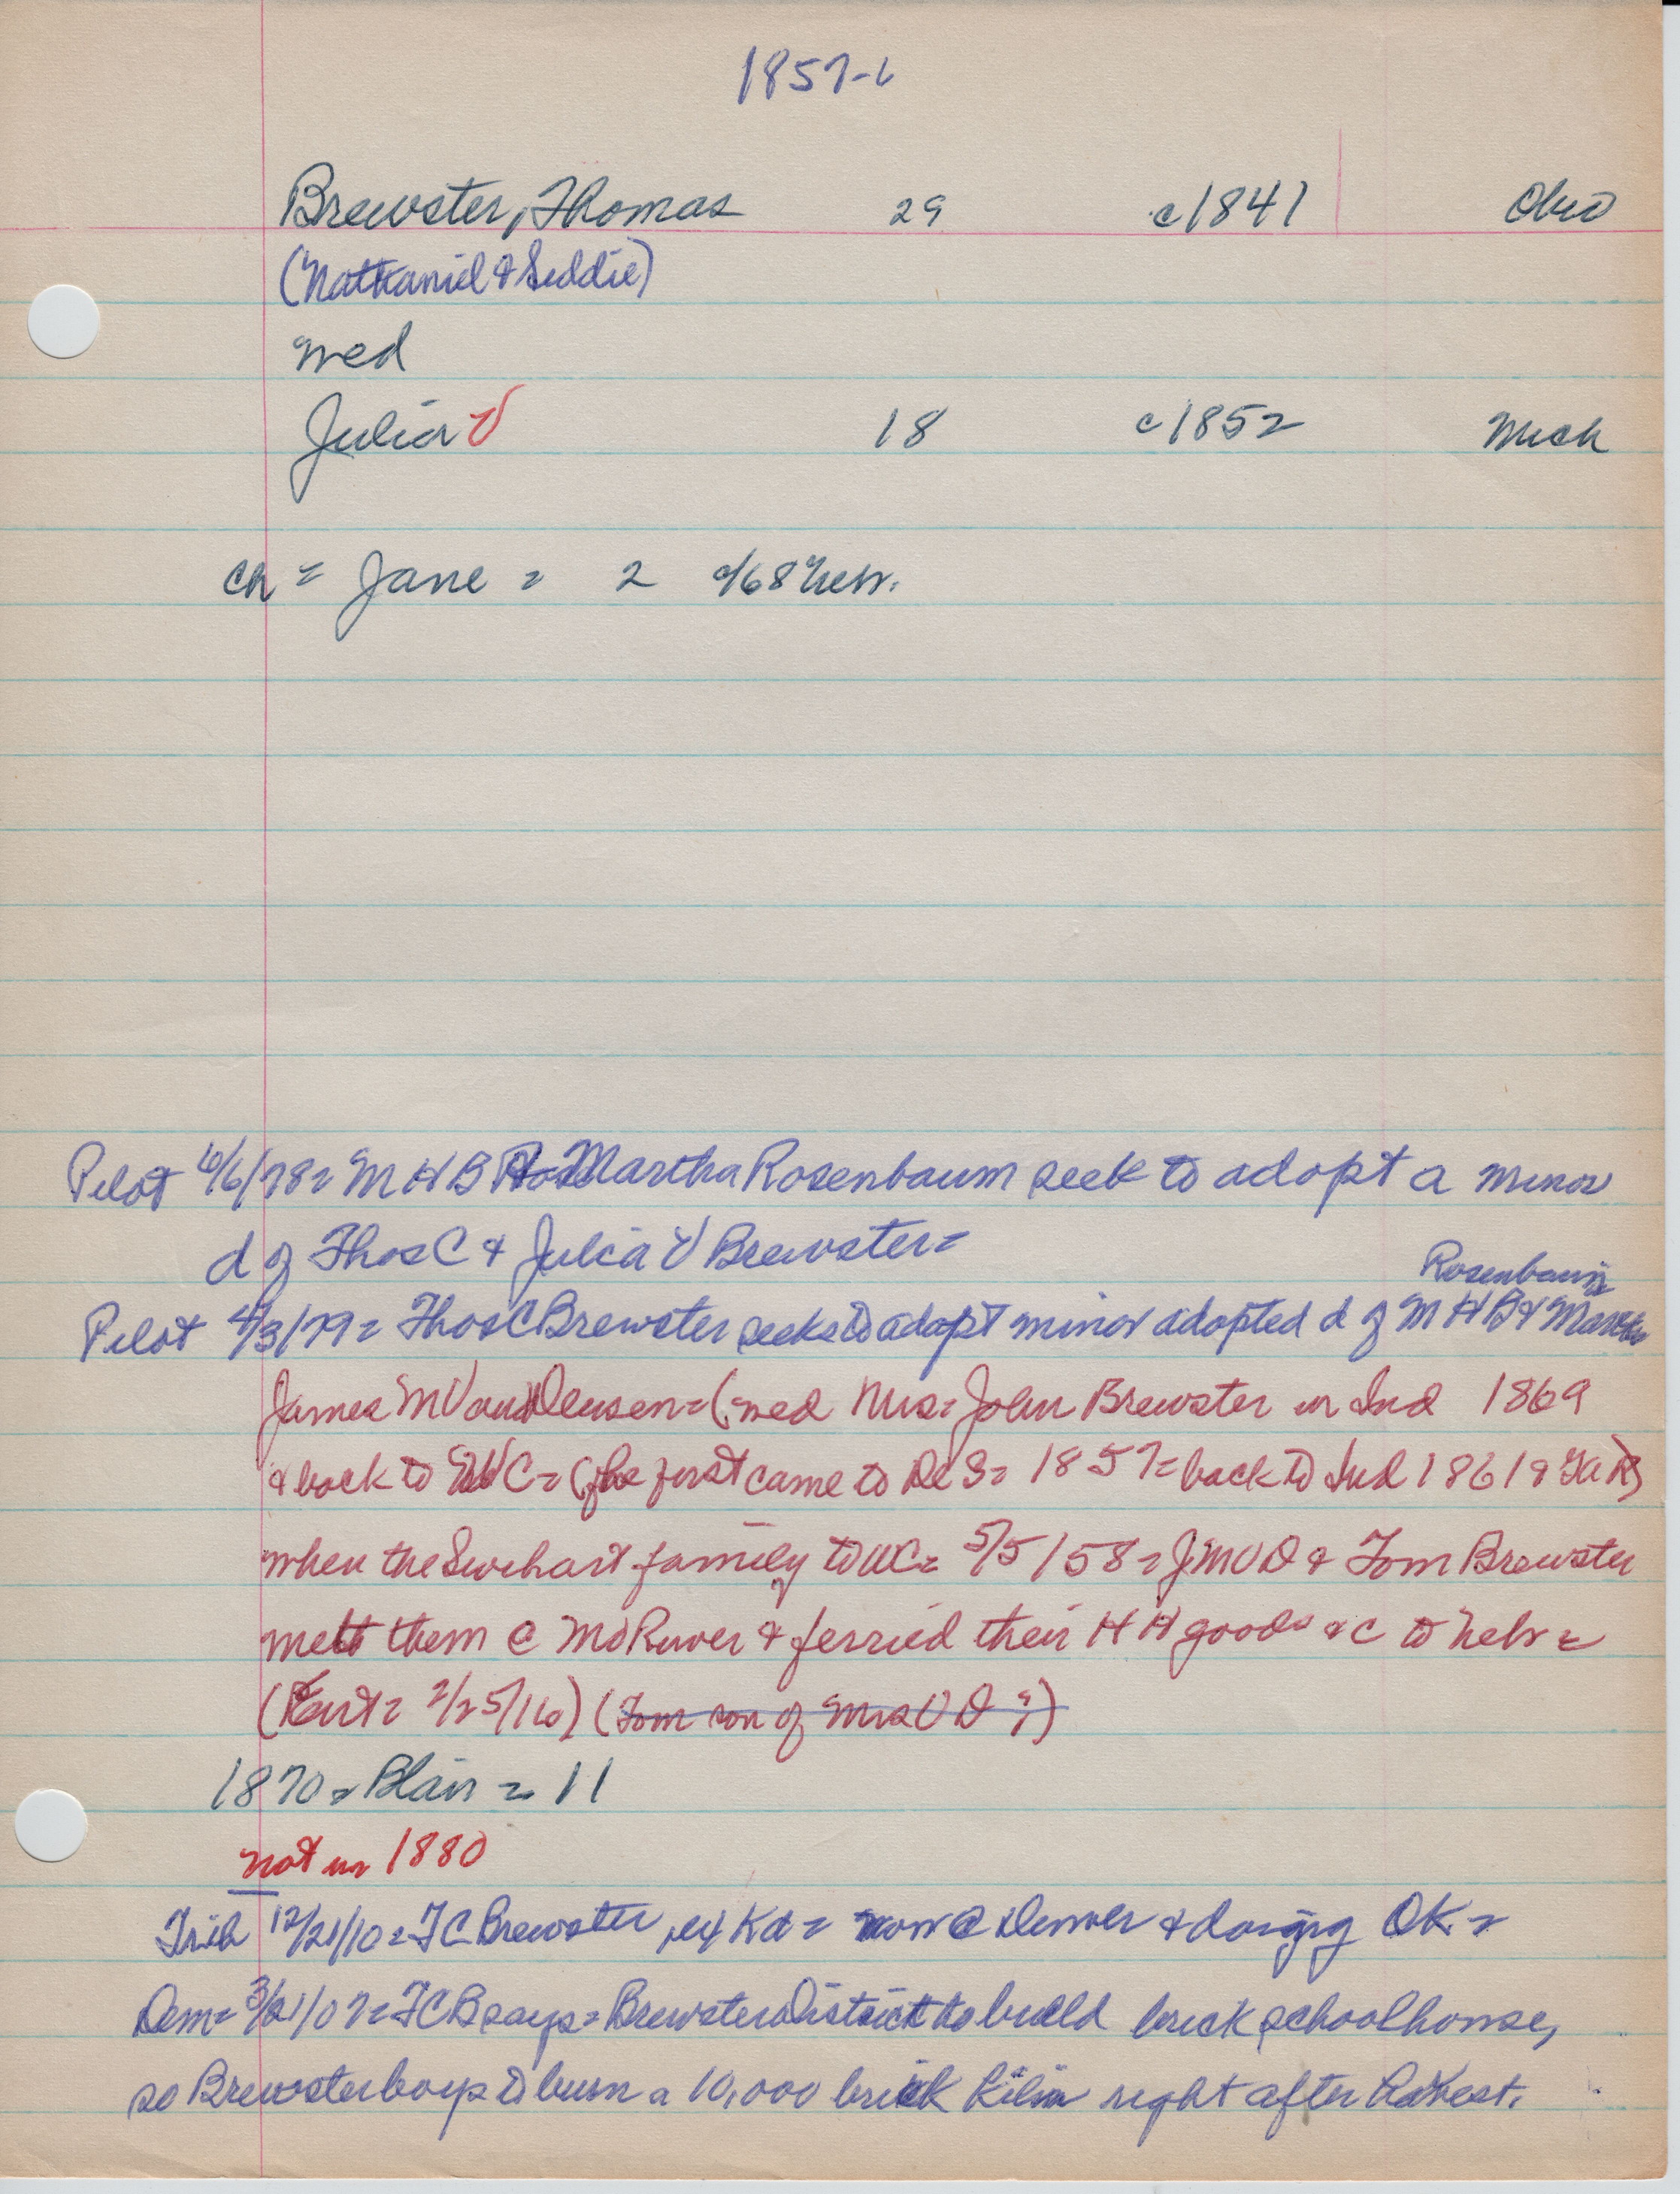 1857-
Brewster, Thomas 29 c1841 Ohio
(Nathaniel & Siddie)
med
Julia V 18 c1852 Mich
ch = Jane = 2 c/68 Nebr.
Pilot 6/78 = M H B Martha Rosenbaum seek to adopt a minor
d of Thos C & Julia V Brewster =
Rosenbaum
Pilot 4/3/79 = Thos C Brewster seeks to adopt minor adopted d of M H B & Martha
James M VanDeusen = (med Mrs = John Brewster in Ind 1869
& back to WC = (he first came to DeS = 1857 = back to Ind 1861 &
when the Swihart family to WC = 5/5/58 = JMVD & Tom Brewster
mett them @ Mo River & ferried their H H goods &c to Nebr =
(Ent = 2/25/16) (Tom son of Mrs V D ?)
1870 = Blair = 11
not in 1880
Trib 12/21/10 = T C Brewster, ex Kd = now @ Denver & doing OK =
Dem = 3/21/07 = TCB says = Brewster District to build brick schoolhouse,
so Brewster boys to burn a 10,000 brick kiln right after harvest.